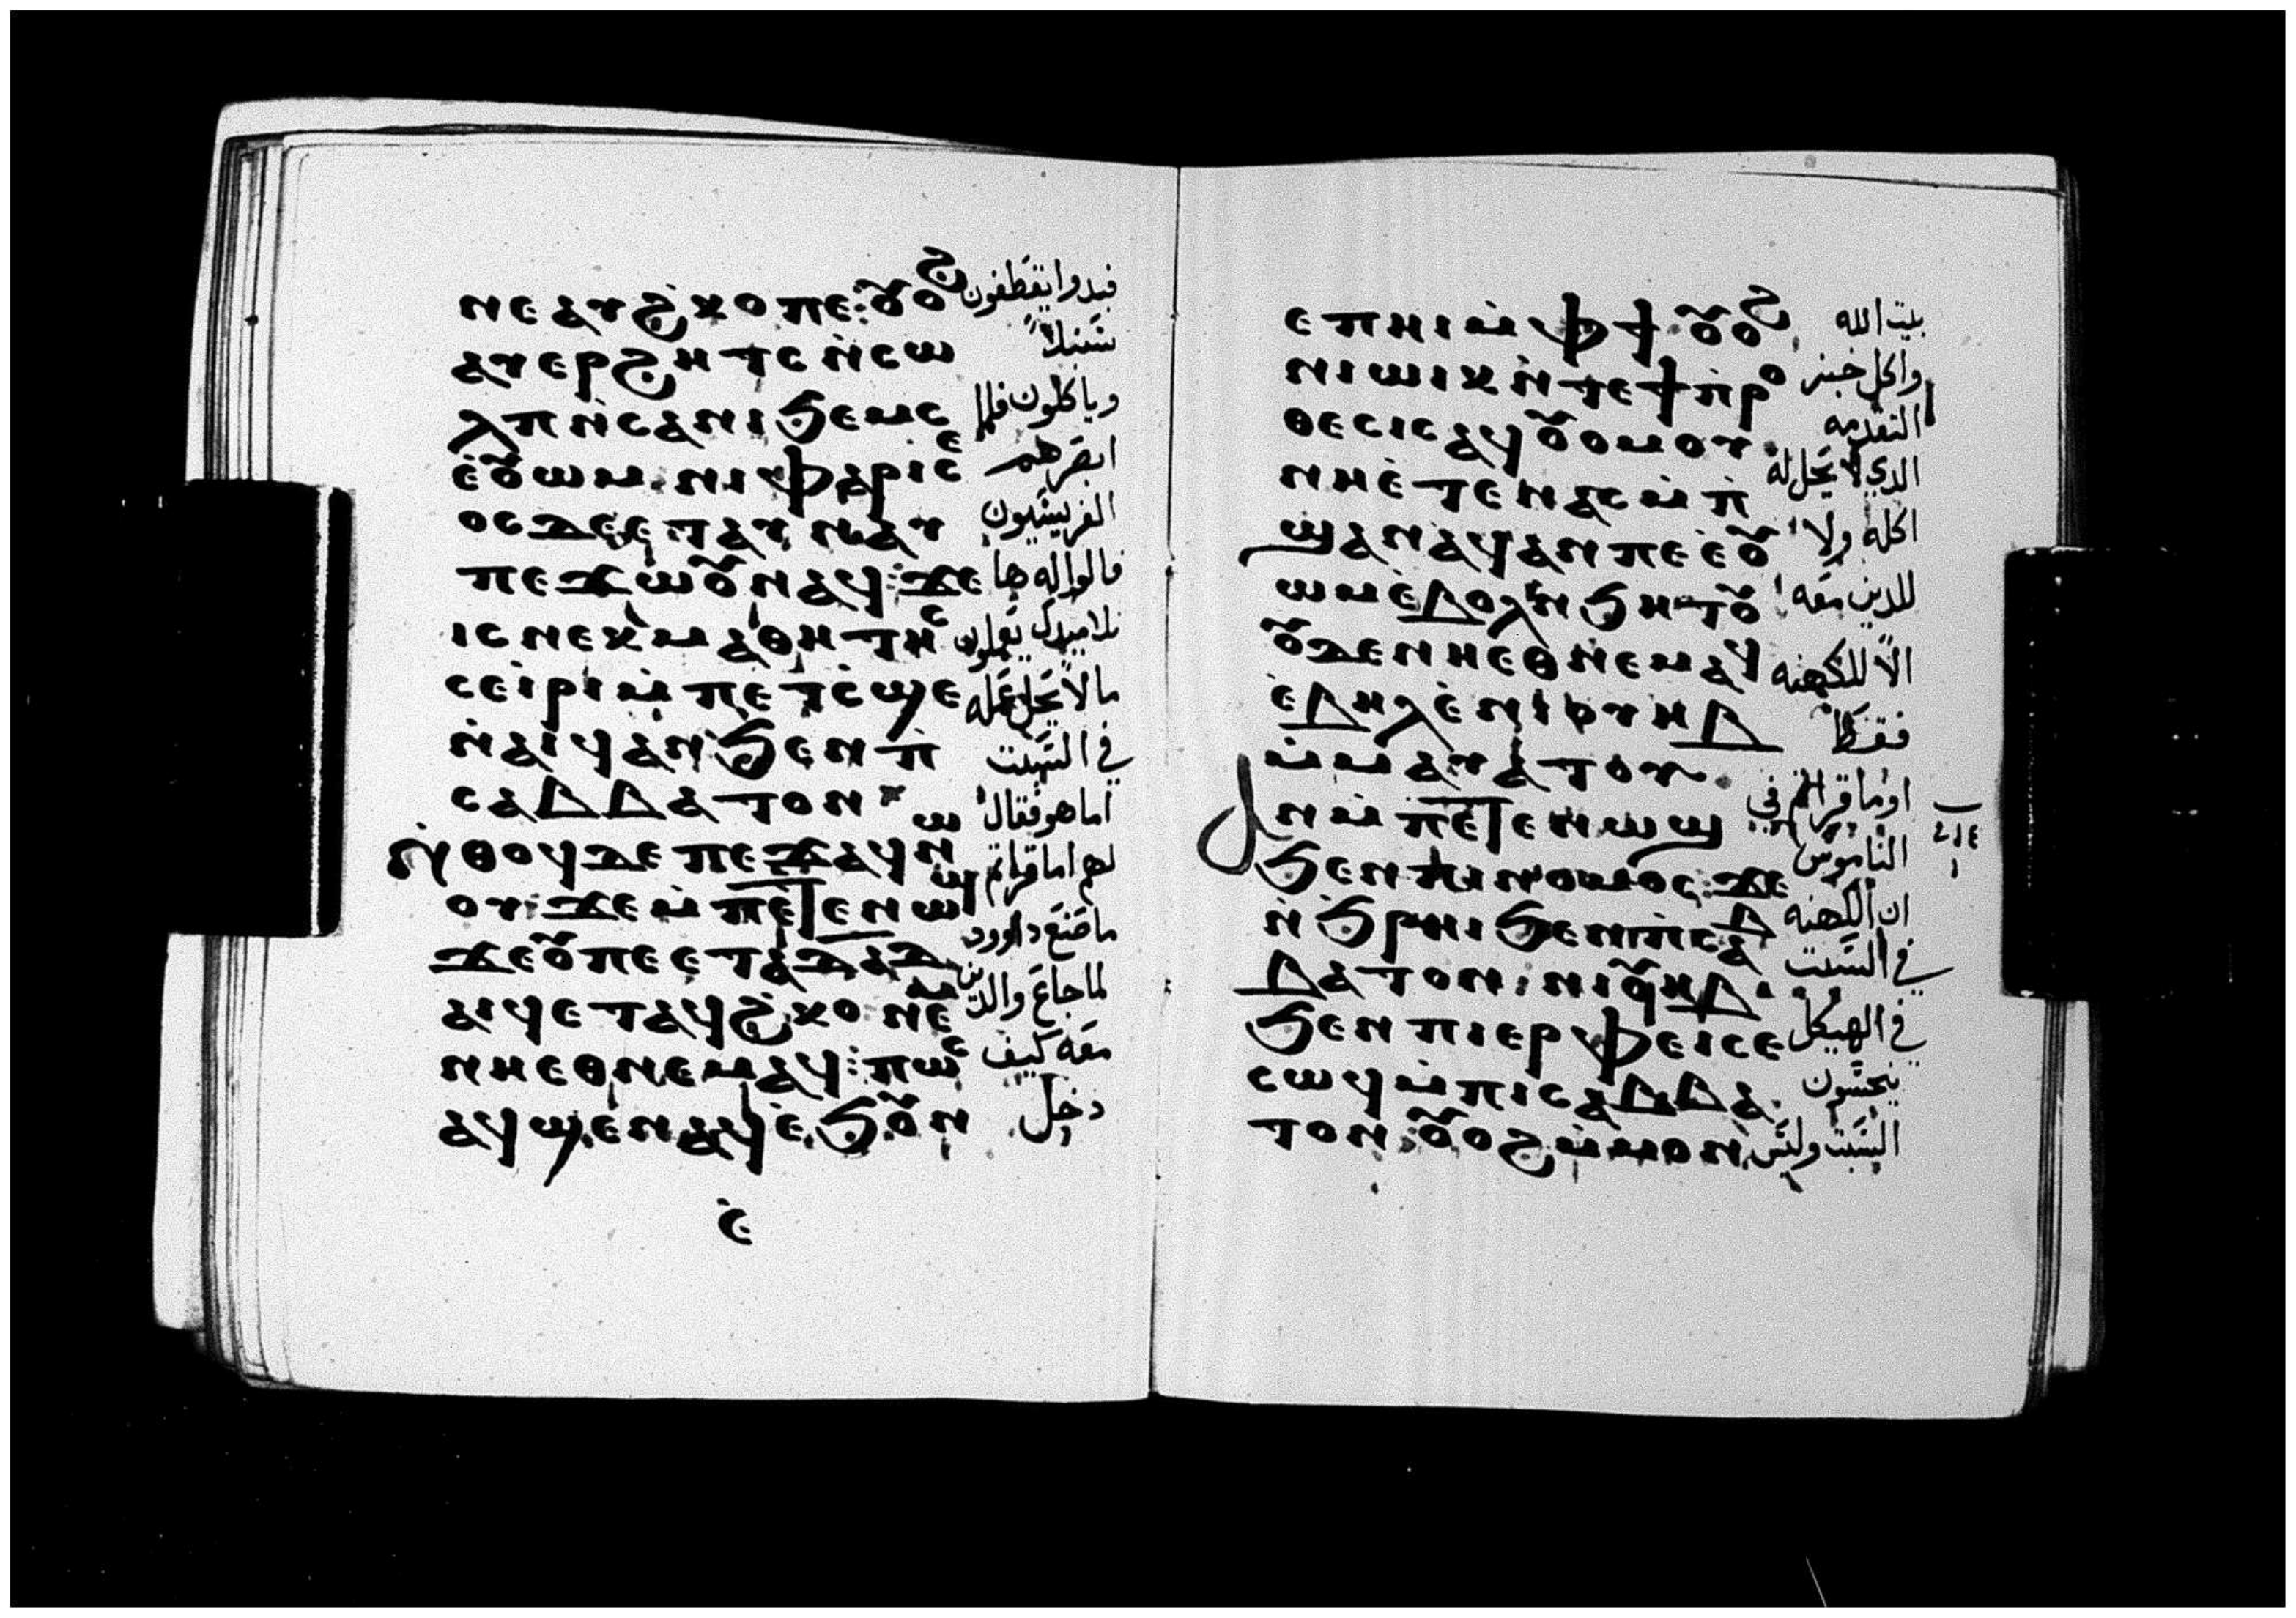 ⲛⲉⲁⲩϩ̇ⲕⲟⲡⲉ: ⲟⲩⲟϩ فبدوا يقطفون
ⲁⲩⲉⲣϩⲏⲧⲥ ⲛ̀ⲥⲱ سنبلاً
ⲗⲡ ⲛ̀ⲥⲁⲛⲓϧⲉⲙⲥ وياكلون فلما
ⲉ̀ⲟⲩⲱⲙ. ⲛⲓⲫⲁⲣⲓⲥⲉ ابصرهم
ⲟⲥ ⲇⲉ ⲉⲧⲁⲩⲛⲁⲩ الفريسيون
ⲡⲉϫⲱⲟⲩ ⲛⲁϥ: ϫⲉ قالوا له ها
ⲓⲥ ⲛⲉⲕⲙⲁⲑⲏⲧⲏⲥ تلاميدك يعملون
ⲥⲉⲓ̀ⲣⲓ ⲙ̀ⲡⲉⲧⲥ̀ϣⲉ ما لا يحل عمله
ⲛ̀ⲁⲓϥ ⲁⲛ ϧⲉⲛ ⲡ̀ في السبت
ⲥⲁⲃⲃⲁⲧⲟⲛ اما هو فقال
ⲛ̀ⲑⲟϥ ⲇⲉ ⲡⲉϫⲁϥ ⲛⲱ لهم اما قراتم
ⲟⲩ: ϫⲉ ⲙ̀ⲡⲉⲧⲉⲛⲱϣ ما صنع داوود
ϫⲉ ⲟⲩ ⲡⲉ ⲉⲧⲁ ⲇⲁⲇ لما جاع والدين
ⲁⲓϥ ⲉⲧⲁϥϩ̇ⲕⲟ ⲛⲉⲙ معه كيف
ⲛⲏⲉⲑⲛⲉⲙⲁϥ: ⲡⲱⲥ دخل
ⲁϥϣⲉⲛⲁϥ ⲉ̀ϧⲟⲩⲛ
ⲉ̀
ⲉⲡⲏⲓ ⲙ̀ⲫϯ. ⲟⲩⲟϩ بيت الله
ⲛⲓⲱⲓⲕ ⲛ̀ⲧⲉϯⲡ̀ⲣⲟ واكل خبز
ⲑⲉⲥⲓⲥ ⲁϥⲟⲩⲟⲙⲟⲩ. التقدمه
ⲛⲏⲉ̀ⲧⲉⲛⲁⲥⲙ̀ⲡ̀ الدي لا يحل له
ϣⲁ ⲛⲁϥ ⲁⲛ ⲡⲉ ⲉ̀ⲟⲩ اكله ولا
ⲱⲙ ⲉ̀ⲃⲟⲗⲛ̀ϧⲏⲧⲟⲩ للدين معه
ⲟⲩⲇⲉ ⲛⲏⲉⲑⲛⲉⲙⲁϥ الا للكهنه
ⲉ̀ⲃⲏⲗ ⲉ̀ⲛⲓⲟⲩⲏⲃ فقط
ⲙ̀ⲙⲁⲩⲁⲧⲟⲩ. اوما قراتم في
ⲓⲛ ⲙ̀ⲡⲉⲧⲉⲛⲱϣ الناموس
ϧⲉⲛ ⲡⲓⲛⲟⲙⲟⲥ: ϫⲉ ان الكهنه
ⲛ̀ϧⲣⲏⲓ ϧⲉⲛ ⲡ̀ⲥⲁⲃ في السبت
ⲃⲁⲧⲟⲛ: ⲛⲓⲟⲩⲏⲃ. في الهيكل
ϧⲉⲛ ⲡⲓⲉⲣⲫⲉⲓ ⲥⲉ ينجسون
ⲥⲱϥ ⲙ̀ⲡⲓⲥⲁⲃⲃⲁ السبت وليس
ⲧⲟⲛ: ⲟⲩⲟϩ ⲙ̀ⲙⲟⲛ